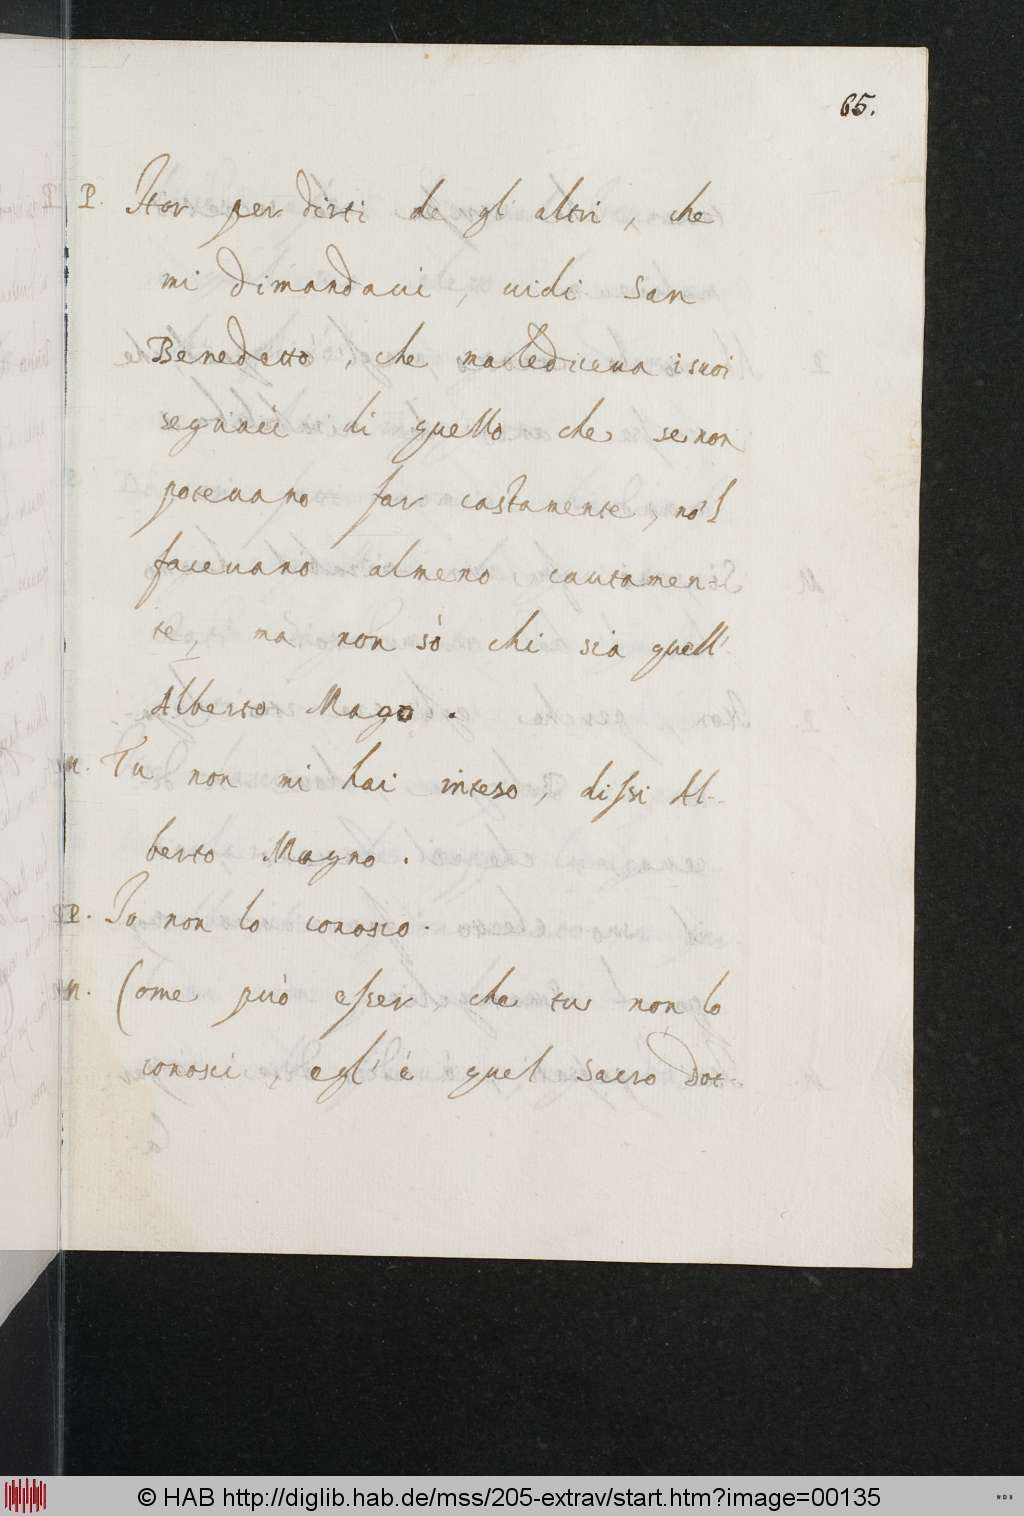 65.
P. Hor per dirti de gl' altri, che
mi dimandaui, uidi San
Benedetto, che malediceua i suoi
seguaci di quello che se non
poteuano far castamente, no'l
faceuano almeno cautamen-
te, ma non sò chi sia quell'
Alberto Mago.
M. Tu non mi hai inteso, dissi Al-
berto Magno.
P. Io non lo conosco.
M. Come può esser che tu non lo
conosci, egl' è quel sacro Dot-
© HAB http://diglib.hab.de/mss/205-extrav/start.htm?image=00135